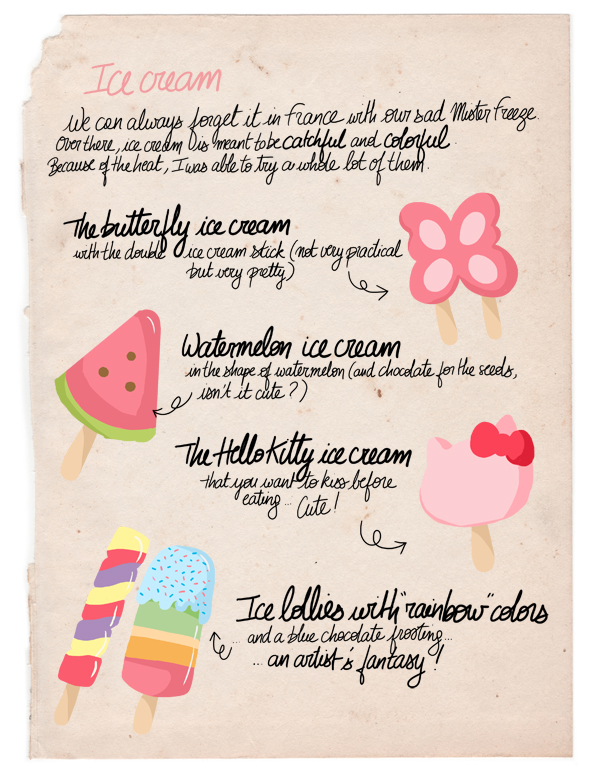 Ice cream
We can always forget it in France with our sad Mister Freeze.
Over there, ice cream is meant to be catchful and colorful.
Because of the heat, I was able to try a whole lot of them.
The butterfly ice cream
with the double ice cream stick (not very practical
but very pretty)
Watermelon ice cream
in the shape of watermelon (and chocolate for the seeds,
isn't it cute?)
The Hello Kitty ice cream
that you want to kiss before
eating... Cute!
Ice lollies with "rainbow" colors
... and a blue chocolate frosting...
... an artist's fantasy!